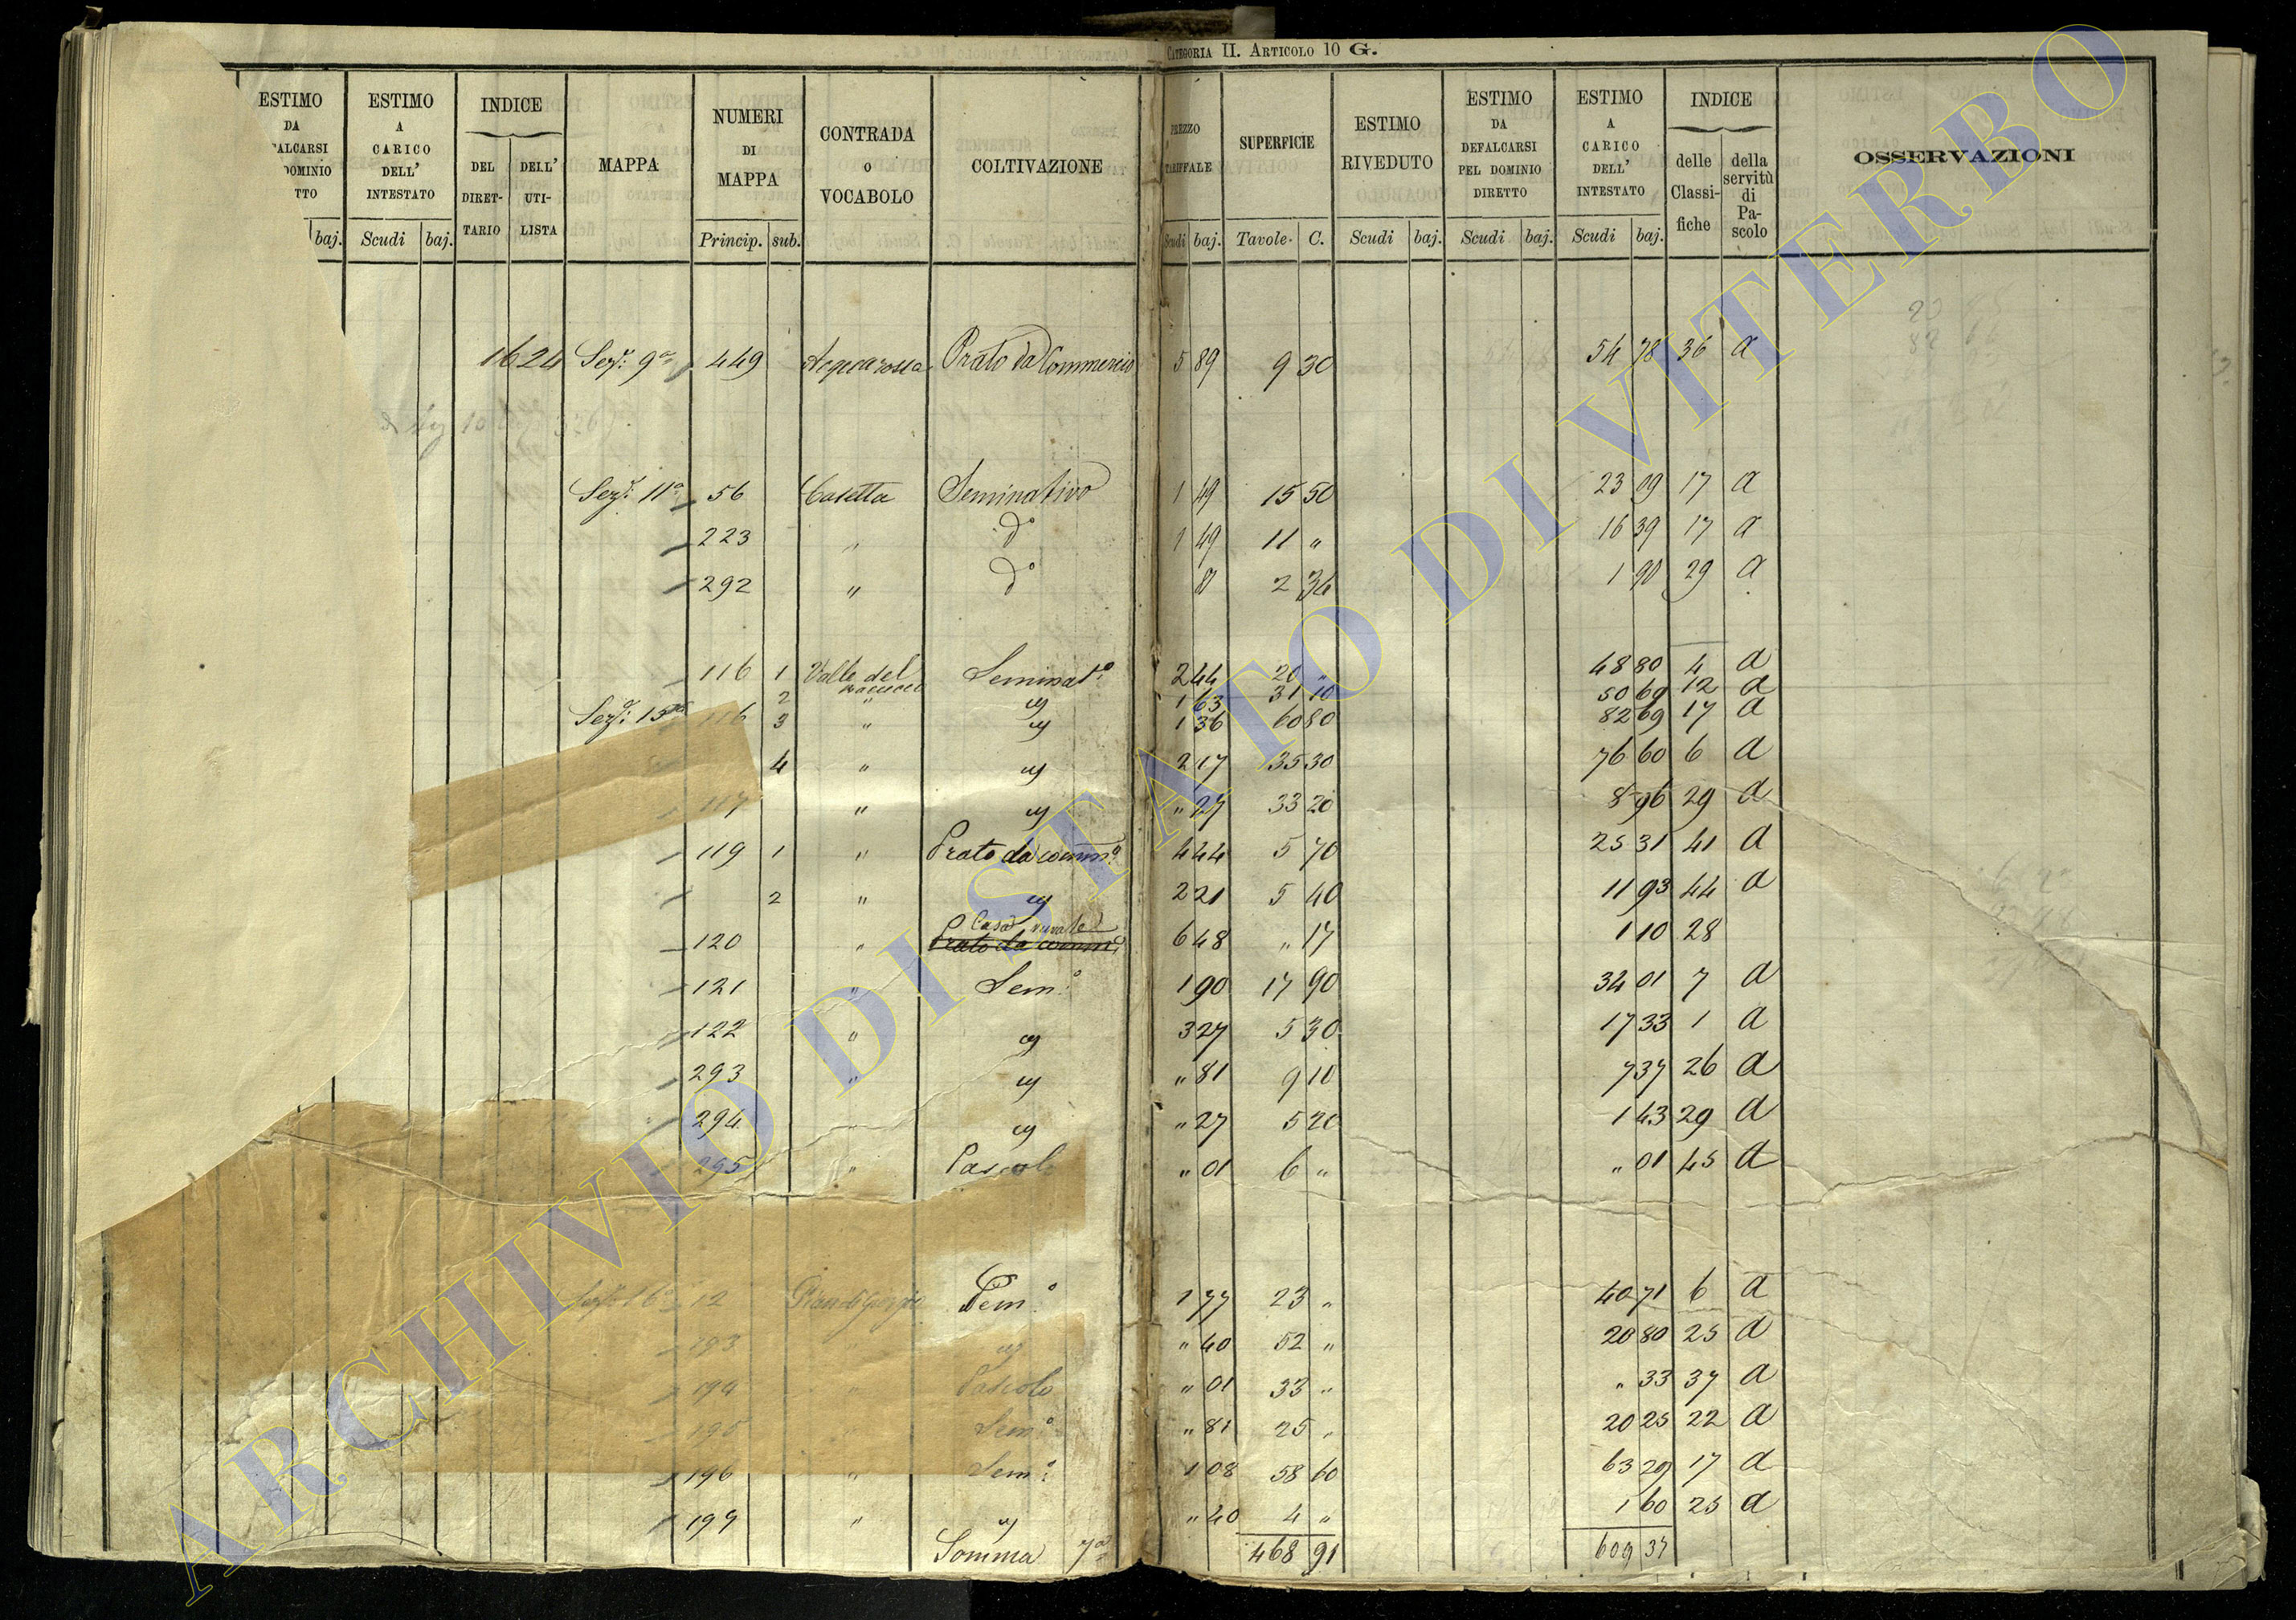 CATEGORIA II. ARTICOLO 10 G.
ESTIMO DA DEFALCARSI PEL DOMINIO DIRETTO
ESTIMO A CARICO DELL' INTESTATO
INDICE
DEL DIRET-TARIO
DELL' UTI-LISTA
MAPPA
NUMERI DI MAPPA
CONTRADA o VOCABOLO
COLTIVAZIONE
PREZZO TARIFFALE
SUPERFICIE
ESTIMO RIVEDUTO
ESTIMO DA DEFALCARSI PEL DOMINIO DIRETTO
ESTIMO A CARICO DELL' INTESTATO
INDICE
delle Classi-fiche
della servitù di Pa-scolo
OSSERVAZIONI
baj. Scudi baj. Princip. sub. Scudi baj. Tavole. C. Scudi baj. Scudi baj. Scudi baj.
1624 Seze: 9a 449 Acquarossa Prato da Commercio 5 89 9 30 54 78 36 a
Seze: 11a 56 Casetta Seminativo 1 49 15 50 23 09 17 a
223 " do 1 49 11 " 16 39 17 a
292 " do 81 2 34 1 90 29 a
116 1 Valle del Seminato 2 44 20 " 48 80 4 a
2 " 1 63 31 10 50 69 12 a
Seze: 13a 116 3 " 1 36 60 80 82 69 17 a
4 " 2 17 35 30 76 60 6 a
117 " " 27 33 20 8 96 29 a
119 1 " Prato da commo 4 44 5 70 25 31 41 a
2 " 2 21 5 40 11 93 44 a
Casa rurale
120 " Prato da commo 6 48 " 17 1 10 28
121 " Semo: 1 90 17 90 34 01 7 a
122 " 3 27 5 30 17 33 1 a
293 " " 81 9 10 7 37 26 a
294 " " 27 5 20 1 43 29 a
295 " Pascolo " 01 6 " " 01 45 a
Sezo: 16a 12 Semo: 1 77 23 " 40 71 6 a
193 " " 40 52 " 20 80 25 a
194 " Pascolo " 01 33 " " 33 37 a
195 " Semo: " 81 25 " 20 25 22 a
196 " Semo: 1 08 58 60 63 29 17 a
199 " " 40 4 " 1 60 25 a
Somma 7a 468 91 609 37
ARCHIVIO DI STATO DI VITERBO